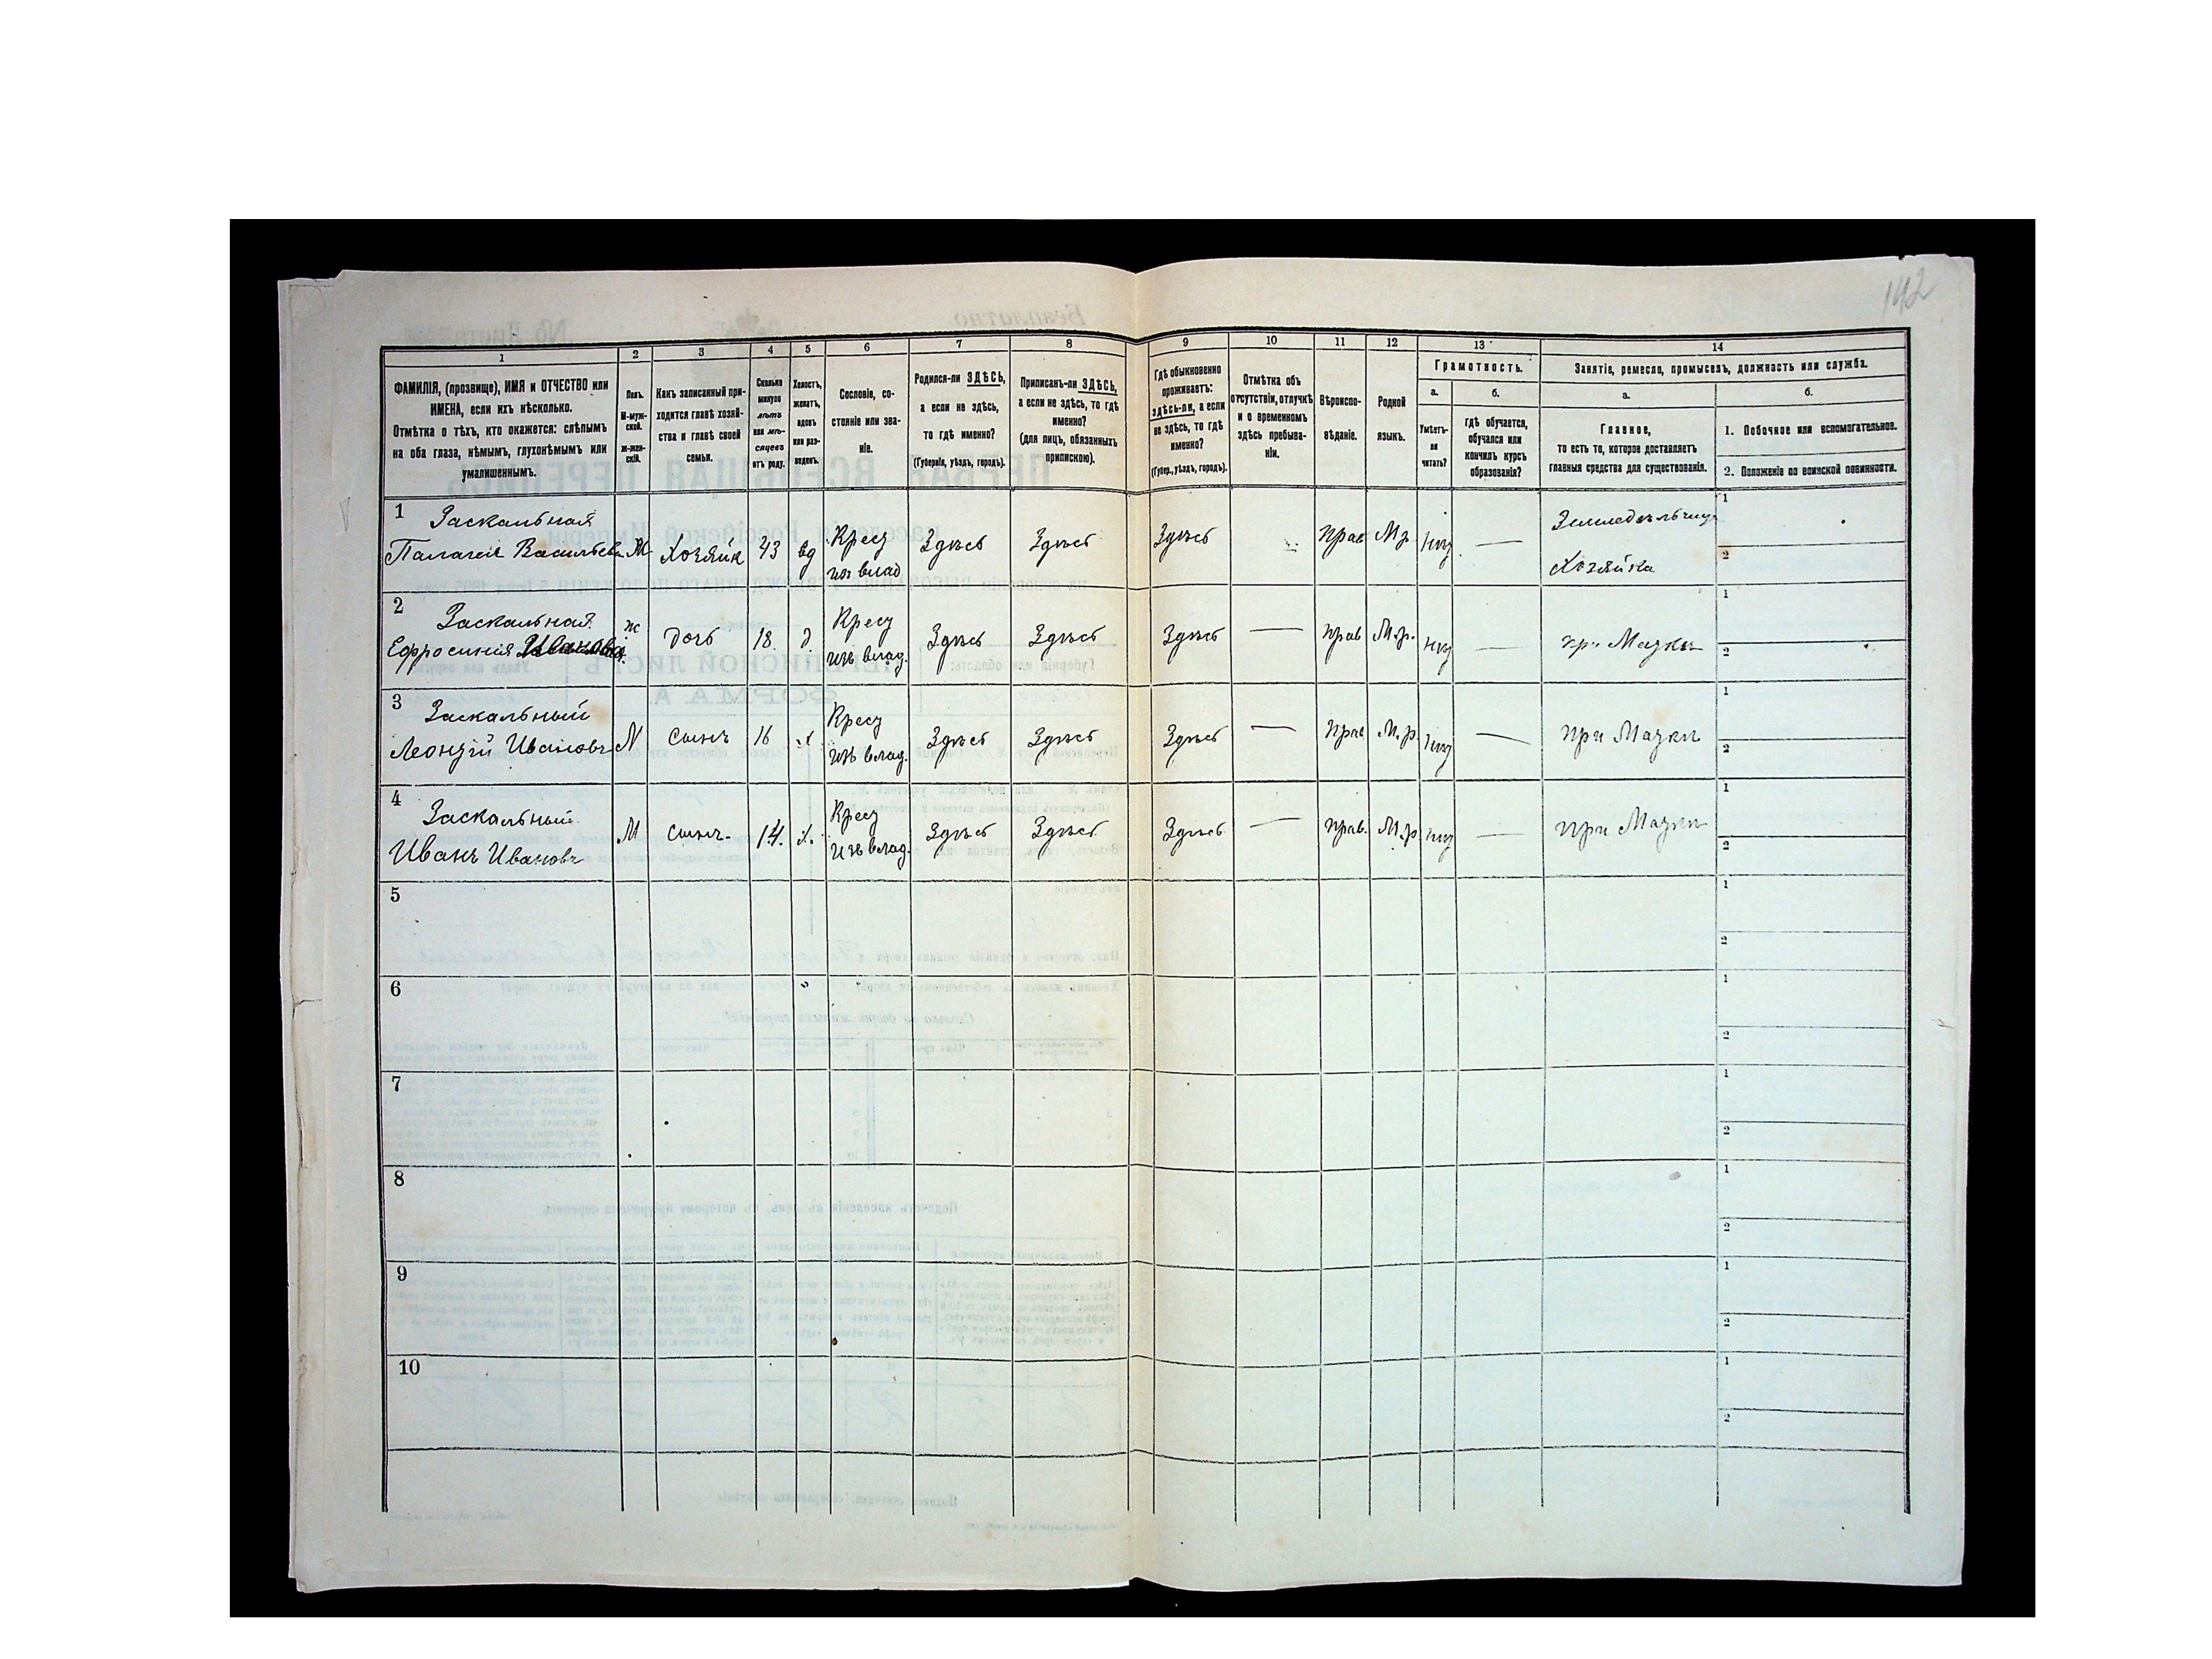 142
1 2 3 4 5 6 7 8 9 10 11 12 13 14
ФАМИЛІЯ, (прозвище), ИМЯ и ОТЧЕСТВО или
ИМЕНА, если ихъ нѣсколько.
Отмѣтка о тѣхъ, кто окажется: слѣпымъ
на оба глаза, нѣмымъ, глухонѣмымъ или
умалишеннымъ.
Полъ.
М-муж-
ской.
ж-жен-
скій.
Какъ записанный при-
ходится главѣ хозяй-
ства и главѣ своей
семьи.
Сколько
минуло
лѣтъ
или мѣ-
сяцевъ
отъ роду.
Холостъ,
женатъ,
вдовъ
или раз-
веденъ.
Сословіе, со-
стояніе или зва-
ніе.
Родился-ли ЗДѢСЬ,
а если не здѣсь,
то гдѣ именно?
(Губернія, уѣздъ, городъ).
Приписанъ-ли ЗДѢСЬ,
а если не здѣсь, то гдѣ
именно?
(для лицъ, обязанныхъ
припискою).
Гдѣ обыкновенно
проживаетъ:
здѣсь-ли, а если
не здѣсь, то гдѣ
именно?
(Губер., уѣздъ, городъ).
Отмѣтка объ
отсутствіи, отлучкѣ
и о временномъ
здѣсь пребыва-
ніи.
Вѣроиспо-
вѣданіе.
Родной
языкъ.
Грамотность.
а.
Умѣетъ-
ли
читать?
б.
гдѣ обучается,
обучался или
кончилъ курсъ
образованія?
Занятіе, ремесло, промыселъ, должность или служба.
а.
Главное,
то есть то, которое доставляетъ
главныя средства для существованія.
б.
1. Побочное или вспомогательное.
2. Положеніе по воинской повинности.
1 Заскальная
Палагея Васильев М Хозяйк 43 вд Крест Здѣсь Здѣсь Здѣсь Прав М.р. Земледѣльчица
изъ влад Хозяйка
1
2
2 Заскальная
Ефросинія ж дочь 18. д. Крест Здѣсь Здѣсь Здѣсь — прав М.р. — при Матки
изъ влад.
1
2
3 Заскальный
Леонтій Ивановъ М сынъ 16 х Крест Здѣсь Здѣсь Здѣсь — Прав М.р — при Матки
изъ влад.
1
2
4 Заскальный
Иванъ Ивановъ М сынъ. 14. х. Крест Здѣсь Здѣсь Здѣсь — прав. М.р — при Матки
изъ влад.
1
2
5
1
2
6
1
2
7
1
2
8
1
2
9
1
2
10
1
2